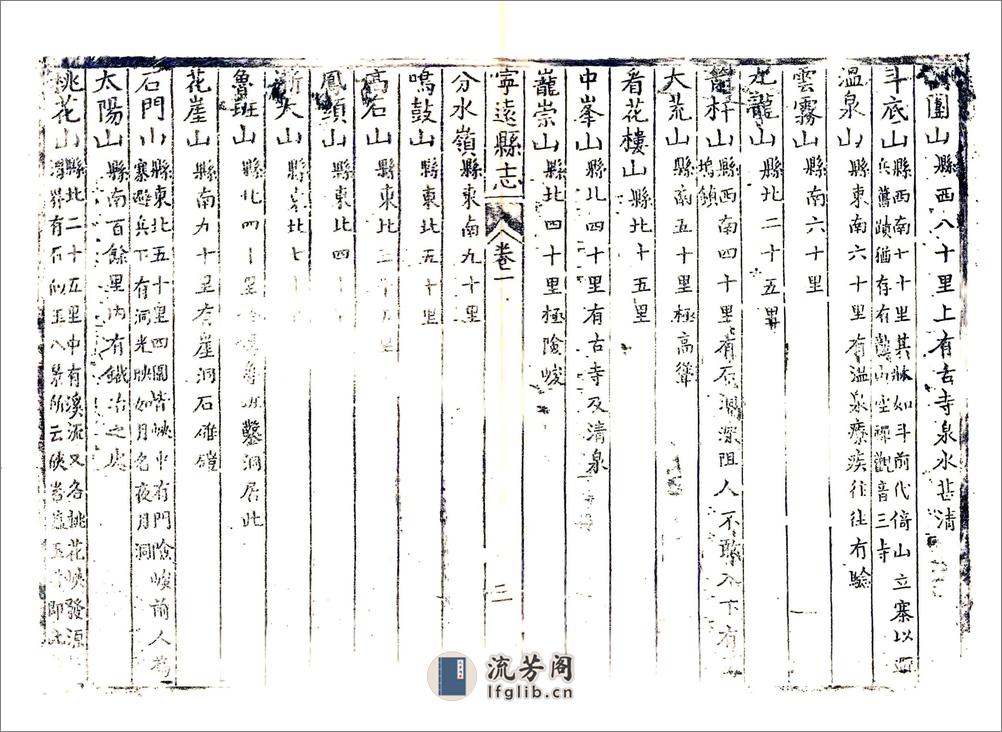 圍山縣西八十里上有古寺泉水甚清
斗底山縣西南七十里其狀如斗前代倚山立寨以
兵舊蹟猶存有 山坐禪觀音三寺
溫泉山縣東南六十里有溫泉療疾往往有驗
雲霧山縣南六十里
九龍山縣北二十五里
山縣西南四十里有石洞深阻人不敢入下有
塢鎮
大荒山縣南五十里極高聳
看花樓山縣北十五里
中峯山縣北四十里有古寺及清泉
蘢崇山縣北四十里極險峻
寧遠縣志 卷一 三
分水嶺縣東南九十里
鳴鼓山縣東北五十里
高石山縣東北三十 里
鳳頭山縣東北四
大山縣東北七
魯班山縣北四十里 魯班鑿洞居此
花崖山縣南九十里有崖洞石磪磪
石門山縣東北五十里四圍皆峽中有門險峻前人為
寨避兵下有洞光映如月名夜月洞
太陽山縣南百餘里內有鐵冶之處
桃花山縣北二十五里中有溪流又名桃花峽發源
渭 有石似玉八景所云峽 玉 即此
流芳阁
lfglib.cn